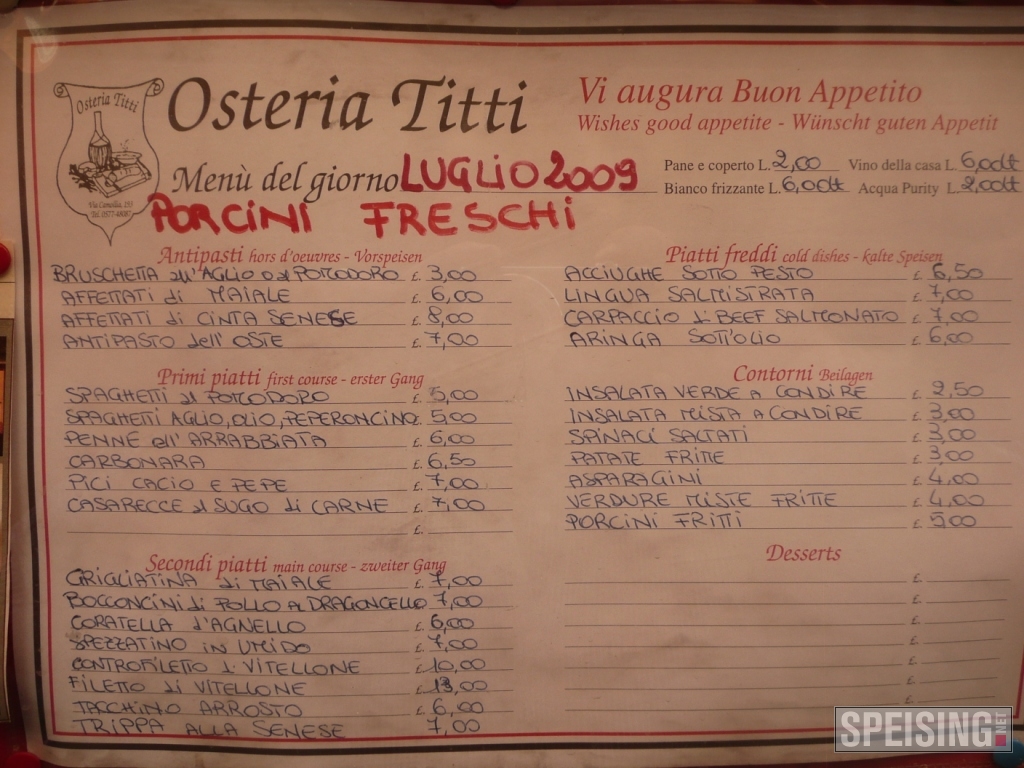 Osteria Titti
Via Camollia, 193
Tel. 0577-48087
Osteria Titti
Vi augura Buon Appetito
Wishes good appetite - Wünscht guten Appetit
Menù del giorno LUGLIO 2009
PORCINI FRESCHI
Pane e coperto L. 2,00 Vino della casa L. 6,00lt
Bianco frizzante L. 6,00lt Acqua Purity L. 2,00lt
Antipasti hors d'oeuvres - Vorspeisen
BRUSCHETTA all'AGLIO o al POMODORO £. 3,00
AFFETTATI di MAIALE £. 6,00
AFFETTATI di CINTA SENESE £. 8,00
ANTIPASTO dell'OSTE £. 7,00
Primi piatti first course - erster Gang
SPAGHETTI al POMODORO £. 5,00
SPAGHETTI AGLIO, OLIO, PEPERONCINO £. 5,00
PENNE all'ARRABBIATA £. 6,00
CARBONARA £. 6,50
PICI CACIO E PEPE £. 7,00
CASARECCE al SUGO di CARNE £. 7,00
£.
Secondi piatti main course - zweiter Gang
GRIGLIATINA di MAIALE £. 7,00
BOCCONCINI di POLLO al DRAGONCELLO 7,00
CORATELLA d'AGNELLO £. 6,00
SPEZZATINO IN UMIDO £. 7,00
CONTROFILETTO di VITELLONE £. 10,00
FILETTO di VITELLONE £. 13,00
TACCHINO ARROSTO £. 6,00
TRIPPA ALLA SENESE 7,00
Piatti freddi cold dishes - kalte Speisen
ACCIUGHE SOTTO PESTO £. 6,50
LINGUA SALMISTRATA £. 7,00
CARPACCIO di BEEF SALMONATO £. 7,00
ARINGA SOTT'OLIO £. 6,00
Contorni Beilagen
INSALATA VERDE A CONDIRE £. 2,50
INSALATA MISTA A CONDIRE £. 3,00
SPINACI SALTATI £. 3,00
PATATE FRITTE £. 3,00
ASPARAGINI £. 4,00
VERDURE MISTE FRITTE £. 4,00
PORCINI FRITTI £. 5,00
Desserts
£.
£.
£.
£.
£.
£.
£.
SPEISING.NET